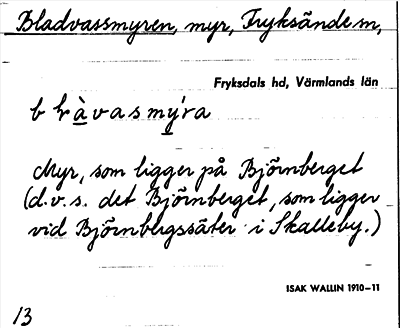 Bladvassmyren, myr, Fryksände sn,
Fryksdals hd, Värmlands län
Myr, som ligger på Björnberget
(d.v.s. det Björnberget, som ligger
vid Björnbergssäter i Skalleby.)
ISAK WALLIN 1910–11
13